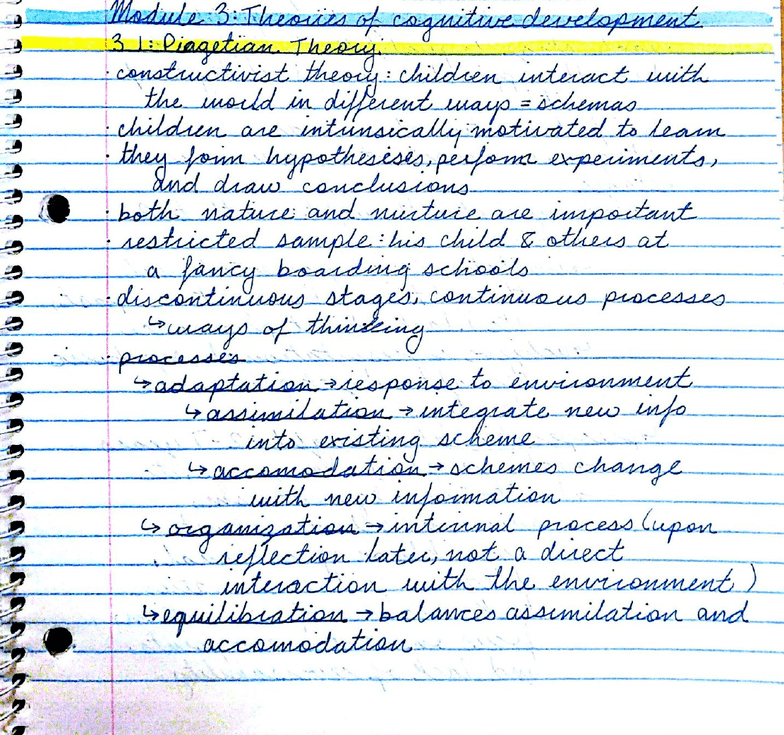 Module 3: Theories of cognitive development
3.1: Piagetian Theory
· constructivist theory: children interact with
the world in different ways = schemas
· children are intrinsically motivated to learn
· they form hypothesises, perform experiments,
and draw conclusions
· both nature and nurture are important
· restricted sample: his child & others at
a fancy boarding schools
· discontinuous stages, continuous processes
↳ ways of thinking
· processes
↳ adaptation → response to environment
↳ assimilation → integrate new info
into existing scheme
↳ accomodation → schemes change
with new information
↳ organization → internal process (upon
reflection later, not a direct
interaction with the environment)
↳ equilibration → balances assimilation and
accomodation